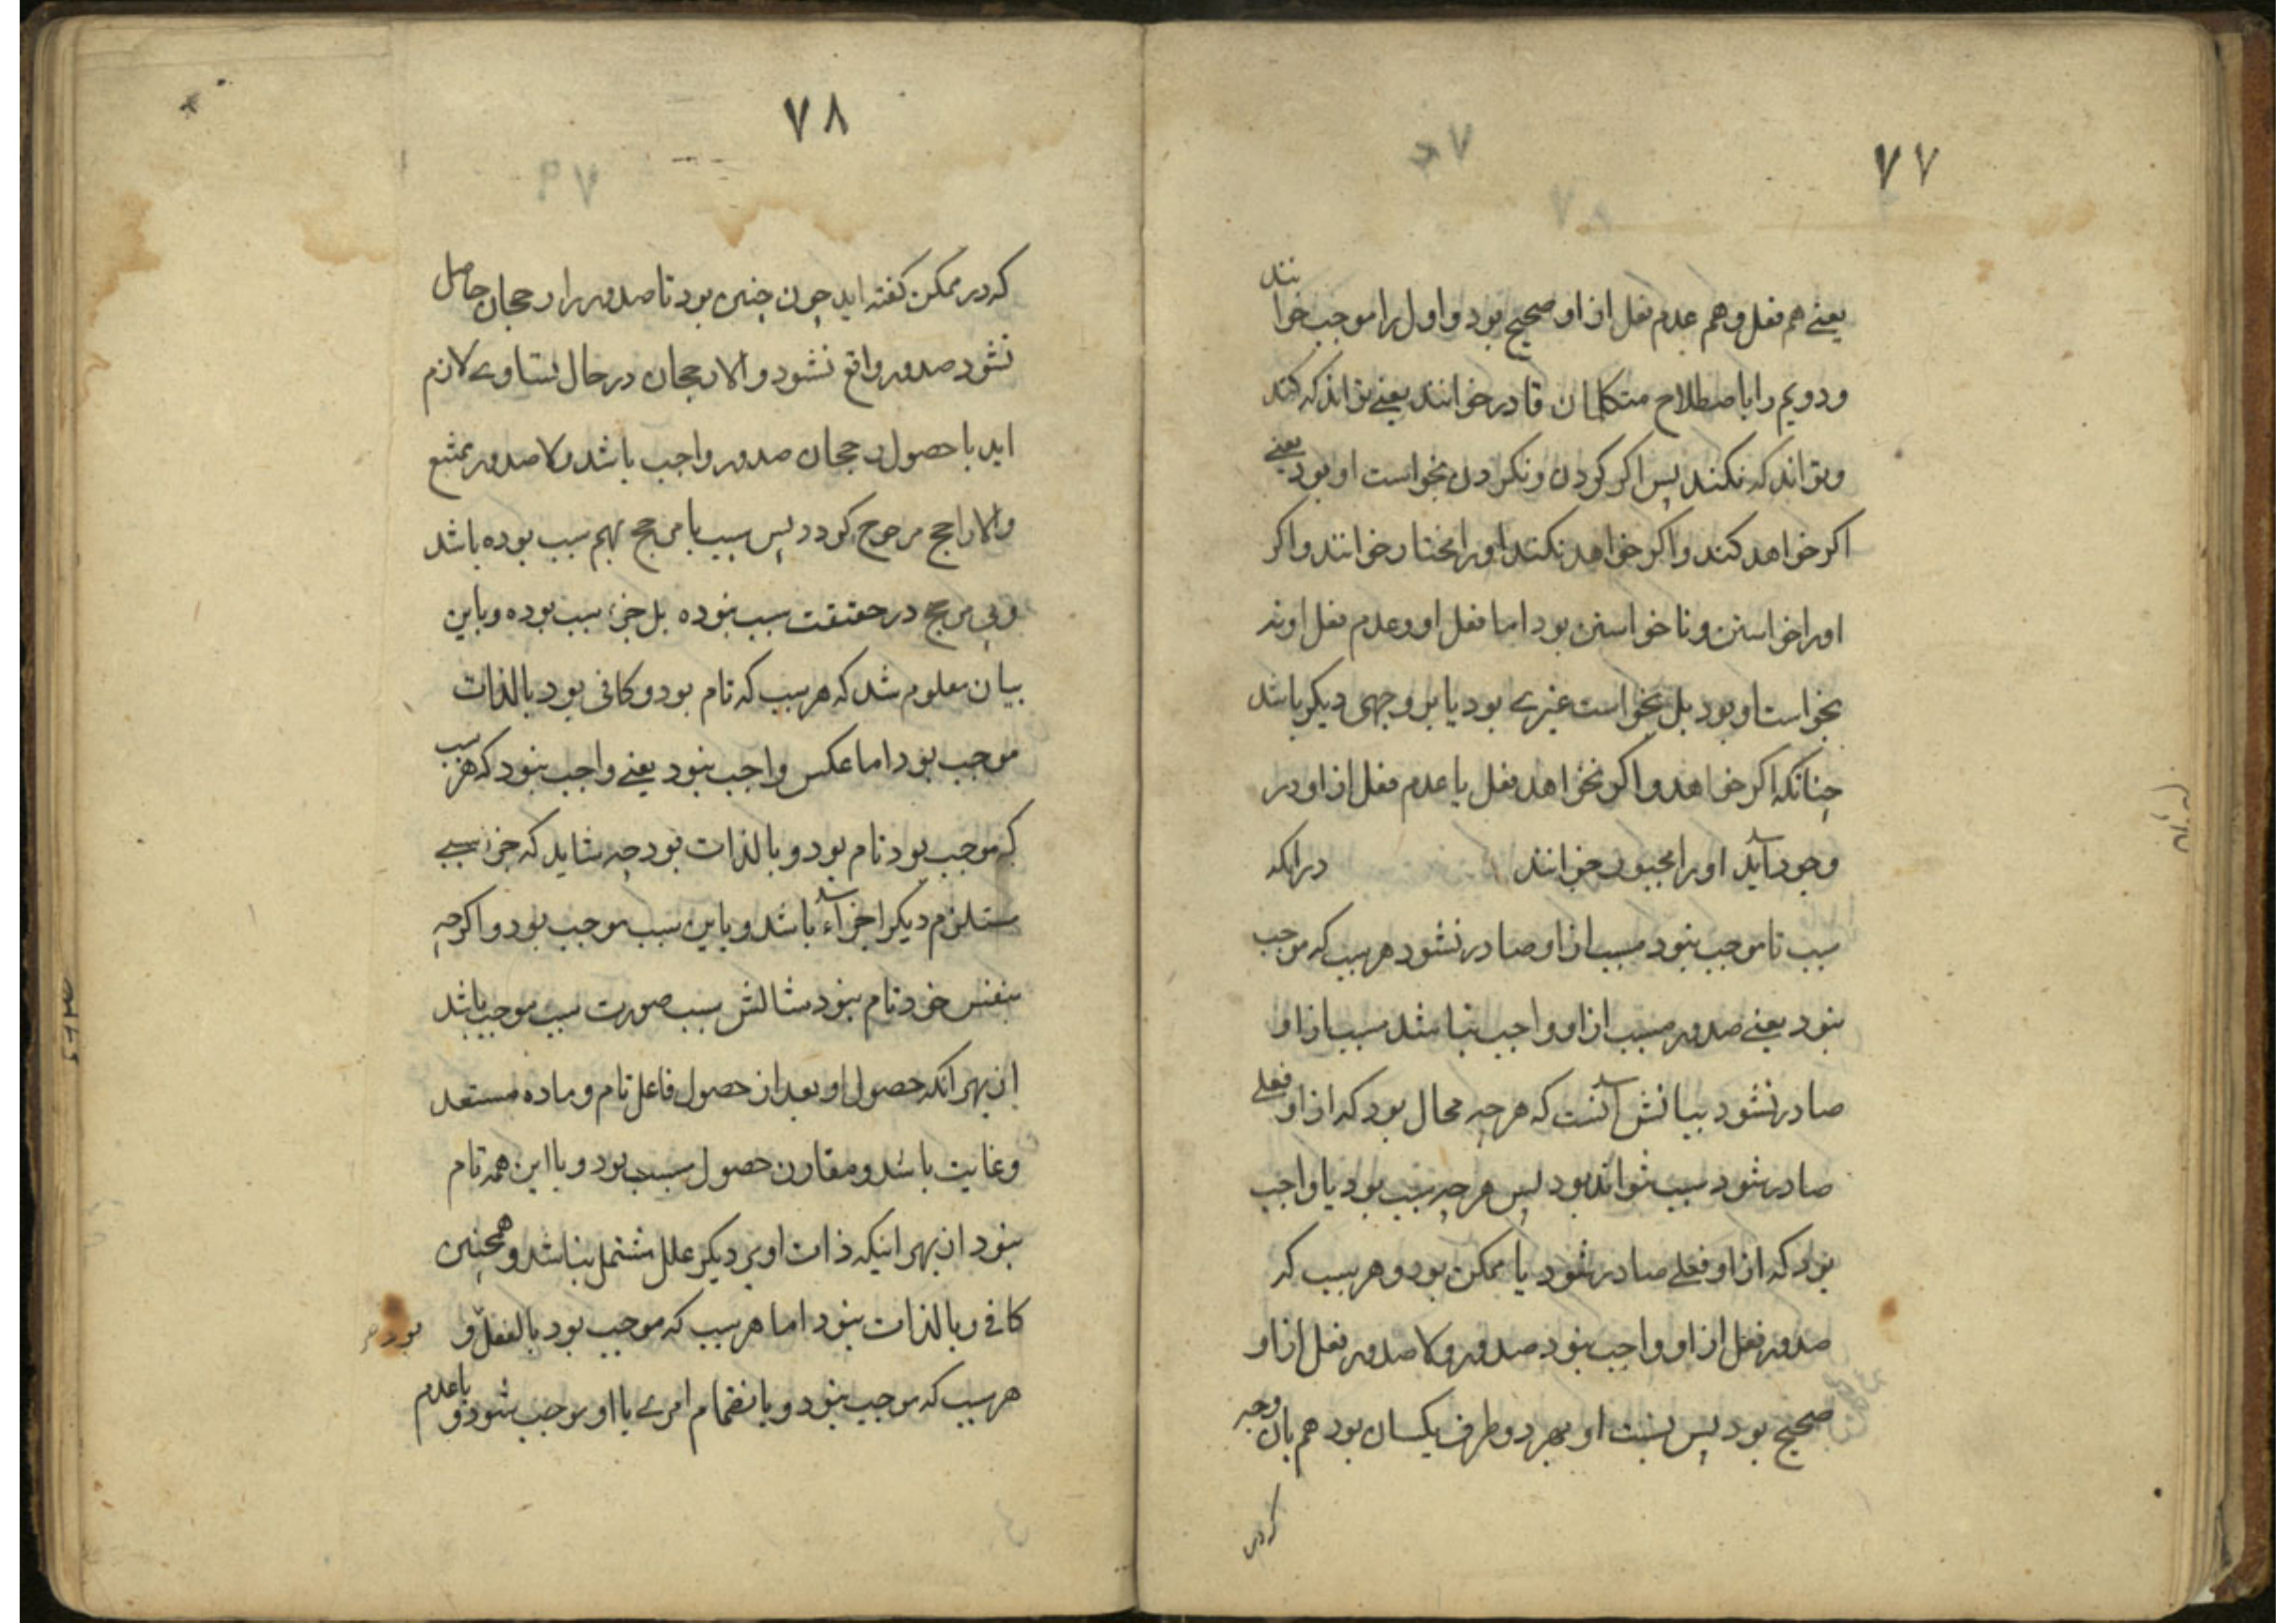 ٧٧
یعنے هم فعل و هم عدم فعل از او صحیح بود و اول را موجب خوانند
و دویم را باصطلاح متکلمان قادر خوانند یعنے تواند که کند
و تواند که نکند پس اکر کردن و نکردن بخواست او بود یعنے
اکر خواهد کند و اکر خواهد نکند او را مختار خوانند و اکر
او را خواستن و ناخواستن بود اما فعل او و عدم فعل او نه
بخواست او بود بل بخواست غیرے بود یا بر وجهی دیکر باشد
چنانکه اکر خواهد و اکر نخواهد فعل یا عدم فعل از او در
وجود آید او را مجبور خوانند در انکه
سبب تا موجب نبود مسبب از او صادر نشود هر سبب که موجب
نبود یعنے صدور مسبب از او واجب نباشد مسبب از او
صادر نشود بیانش آنست که هر چه محال بود که از او فعلے
صادر شود سبب نتواند بود پس هر چه سبب بود یا واجب
بود که از او فعلے صادر شود یا ممکن بود و هر سبب که
صدور فعل از او واجب نبود صدور و لا صدور فعل از او
صحیح بود پس نسبت او بهر دو طرف یکسان بود هم بان وجه
که در
٧٨
که در ممکن کفته اید چون چنین بود تا صدور را رجحان حاصل
نشود صدور واقع نشود و الا رجحان در حال تساوے لازم
اید با حصول رجحان صدور واجب باشد و لا صدور ممتنع
و الا راجح مرجوح کردد پس سبب با مرجح بهم سبب بوده باشد
و بی مرجح در حقیقت سبب نبوده بل جزء سبب بوده و باین
بیان معلوم شد که هر سبب که تام بود و کافی بود بالذات
موجب بود اما عکس واجب نبود یعنے واجب نبود که هر سبب
که موجب بود تام بود و بالذات بود چه شاید که جزء سببے
مستلزم دیکر اجزآء باشد و باین سبب موجب بود و اکر چه
بنفس خود تام نبود مثالش سبب صورت سبب موجب باشد
از بهر انکه حصول او بعد از حصول فاعل تام و ماده مستعد
و غایت باشد و مقارن حصول مسبب بود و با این همه تام
نبود از بهر اینکه ذات او بر دیکر علل مشتمل نباشد و همچنین
کافے و بالذات نبود اما هر سبب که موجب بود بالفعل و بود
هر سبب که موجب نبود و بانضمام امرے با او موجب شود و با عدم